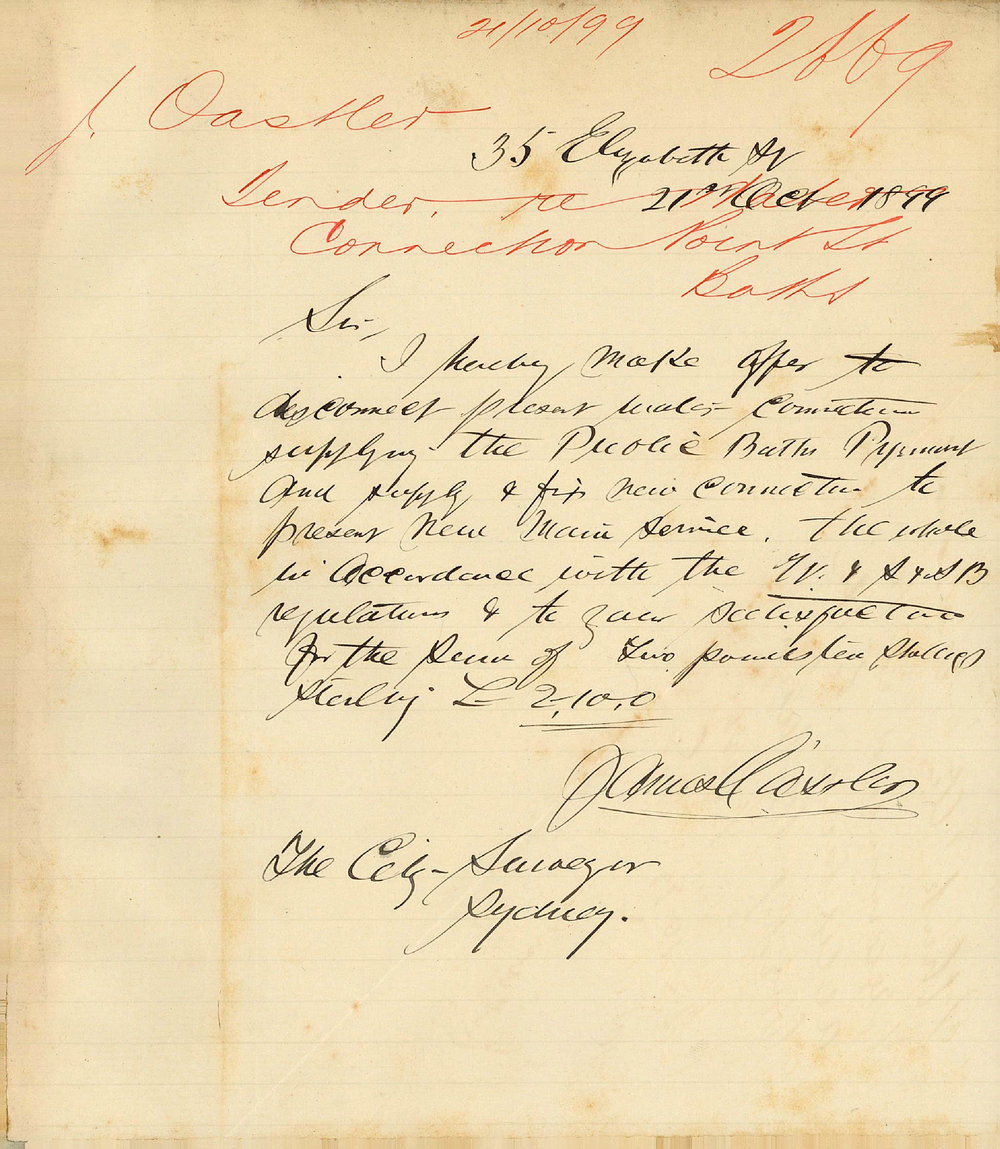 21/10/99
2669
J. Oastler
35 Elizabeth St
Tender, re Water
21st Oct 1899
Connection Point St
Baths
Sir,
I hereby make offer to
disconnect present water connection
supplying the Public Baths Pyrmont
and supply & fix new connection to
present new main service. The whole
in accordance with the M. W. & S & S B
regulations & to your satisfaction
for the sum of Two pounds ten shillings
sterling £ 2,10,0
James Oastler
The City Surveyor
Sydney.